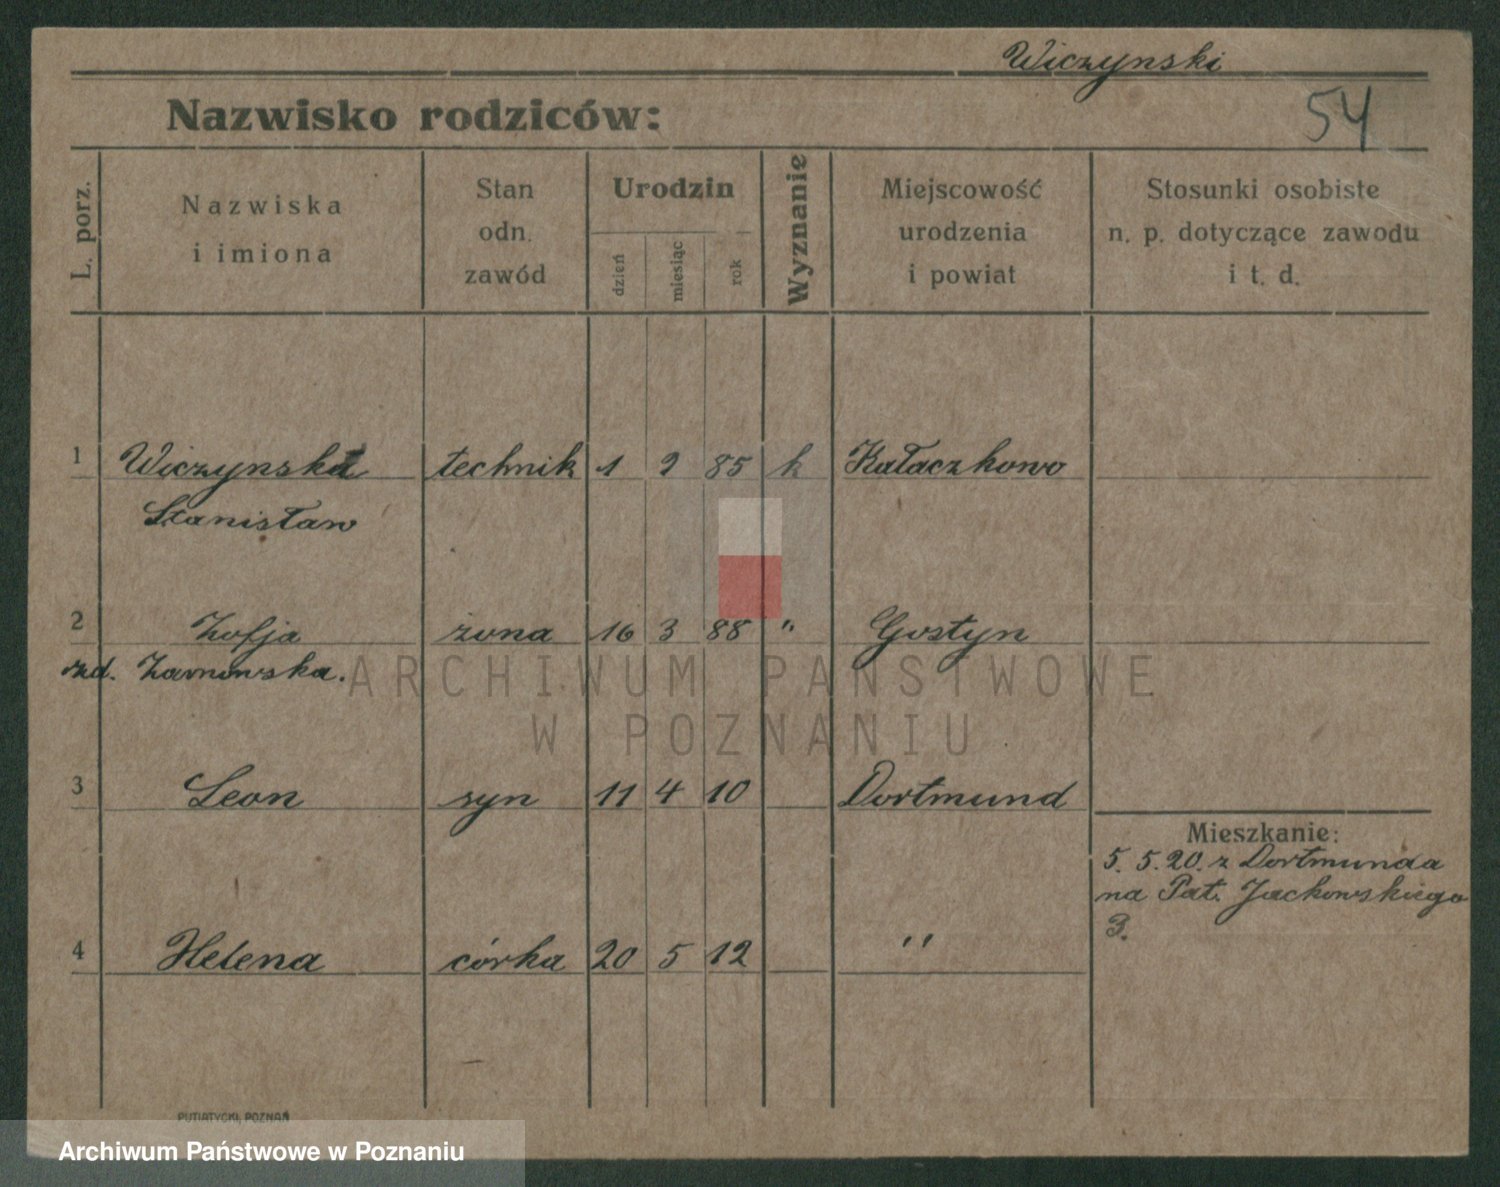 Wiczynski
Nazwisko rodziców:
54
L. porz.
Nazwiska
i imiona
Stan
odn.
zawód
Urodzin
dzień
miesiąc
rok
Wyznanie
Miejscowość
urodzenia
i powiat
Stosunki osobiste
n. p. dotyczące zawodu
i t. d.
1 Wiczynski technik 1 2 85 k Kołaczkowo
Stanisław
2 Zofja żona 16 3 88 " Gostyn
rzd.
3 Leon syn 11 4 10 Dortmund
Mieszkanie:
5. 5. 20. z Dortmunda
na Pat. Jackowskiego
3.
4 Helena córka 20 5 12 "
PUTIATYCKI, POZNAŃ
ARCHIWUM PAŃSTWOWE
W POZNANIU
Archiwum Państwowe w Poznaniu